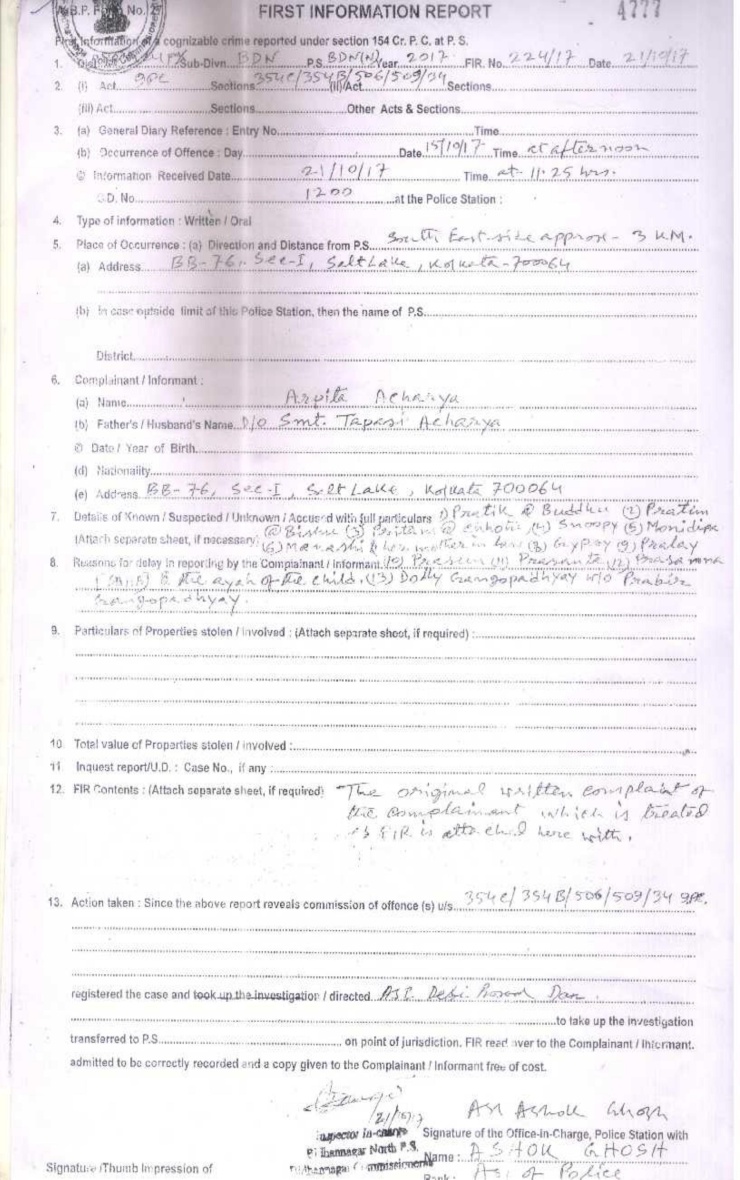 W.B.P. Form No. 27 FIRST INFORMATION REPORT 4777
First Information of a cognizable crime reported under section 154 Cr. P. C. at P. S.
1. Sub-Divn. BDN P.S. BDN(N) Year 2017 FIR. No. 224/17 Date 21/10/17
2. (i) Act IPC Sections 354C/354B/506/509/34 (ii) Act Sections
(iii) Act Sections Other Acts & Sections
3. (a) General Diary Reference : Entry No. Time
(b) Occurrence of Offence : Day Date 15/10/17 Time at afternoon
© Information Received Date 21/10/17 Time at 11.25 hrs.
G.D. No. 1200 at the Police Station :
4. Type of information : Written / Oral
5. Place of Occurrence : (a) Direction and Distance from P.S. South East side approx - 3 KM.
(a) Address BB-76, Sec-I, Salt Lake, Kolkata-700064
(b) In case outside limit of this Police Station, then the name of P.S.
District
6. Complainant / Informant :
(a) Name Arpita Acharya
(b) Father's / Husband's Name D/o Smt. Tapasi Acharya
© Date / Year of Birth
(d) Nationality
(e) Address BB-76, Sec-I, Salt Lake, Kolkata 700064
7. Details of Known / Suspected / Unknown / Accused with full particulars 1) Pratik @ Buddhu (2) Pratim
(Attach separate sheet, if necessary) @ (3) Pritam @ chhotu (4) Snoopy (5) Monidipa
(6) Manashi & her mother in law (8) Gypsy (9) Pralay
8. Reasons for delay in reporting by the Complainant / Informant (10) Prasun (11) Prasanta (12)
& the ayah of the child. (13) Dolly Gangopadhyay w/o Prabir
Gangopadhyay.
9. Particulars of Properties stolen / involved : (Attach separate sheet, if required) :
10. Total value of Properties stolen / involved :
11. Inquest report/U.D. : Case No., if any :
12. FIR Contents : (Attach separate sheet, if required) The original written complaint of
the complainant which is treated
as FIR is attached here with.
13. Action taken : Since the above report reveals commission of offence (s) u/s 354C/354B/506/509/34 IPC.
registered the case and took up the investigation / directed ASI. Debi Prosad Dan.
to take up the investigation
transferred to P.S. on point of jurisdiction. FIR read over to the Complainant / Informant.
admitted to be correctly recorded and a copy given to the Complainant / Informant free of cost.
21/10/17 ASI Ashok Ghosh
Inspector in-charge Signature of the Office-in-Charge, Police Station with
Bidhannagar North P.S. Name : ASHOK GHOSH
Bidhannagar Commissionerate
Signature /Thumb Impression of Rank : ASI of Police